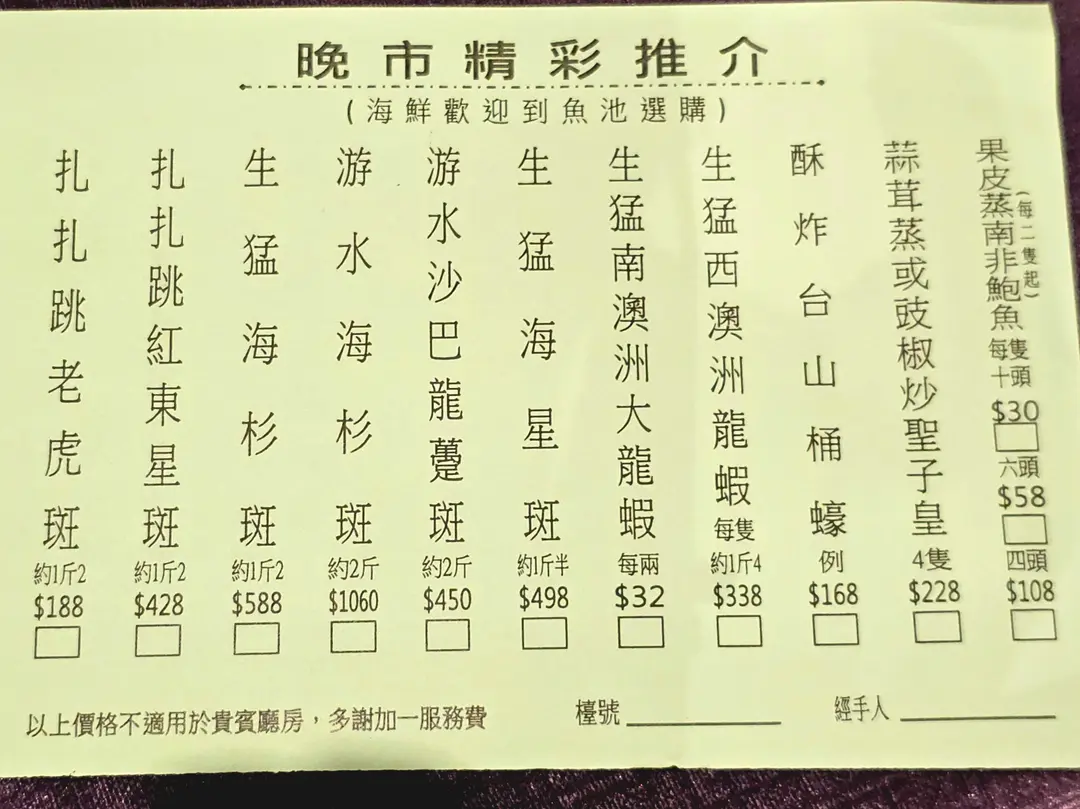 晚市精彩推介
(海鮮歡迎到魚池選購)
果皮蒸南非鮑魚
(每二隻起)
每隻
十頭
$30
六頭
$58
四頭
$108
蒜茸蒸或豉椒炒聖子皇
4隻
$228
酥炸台山桶蠔
例
$168
生猛西澳洲龍蝦
每隻
約1斤4
$338
生猛南澳洲大龍蝦
每兩
$32
生猛海星斑
約1斤半
$498
游水沙巴龍躉斑
約2斤
$450
游水海杉斑
約2斤
$1060
生猛海杉斑
約1斤2
$588
扎扎跳紅東星斑
約1斤2
$428
扎扎跳老虎斑
約1斤2
$188
以上價格不適用於貴賓廳房，多謝加一服務費
檯號
經手人